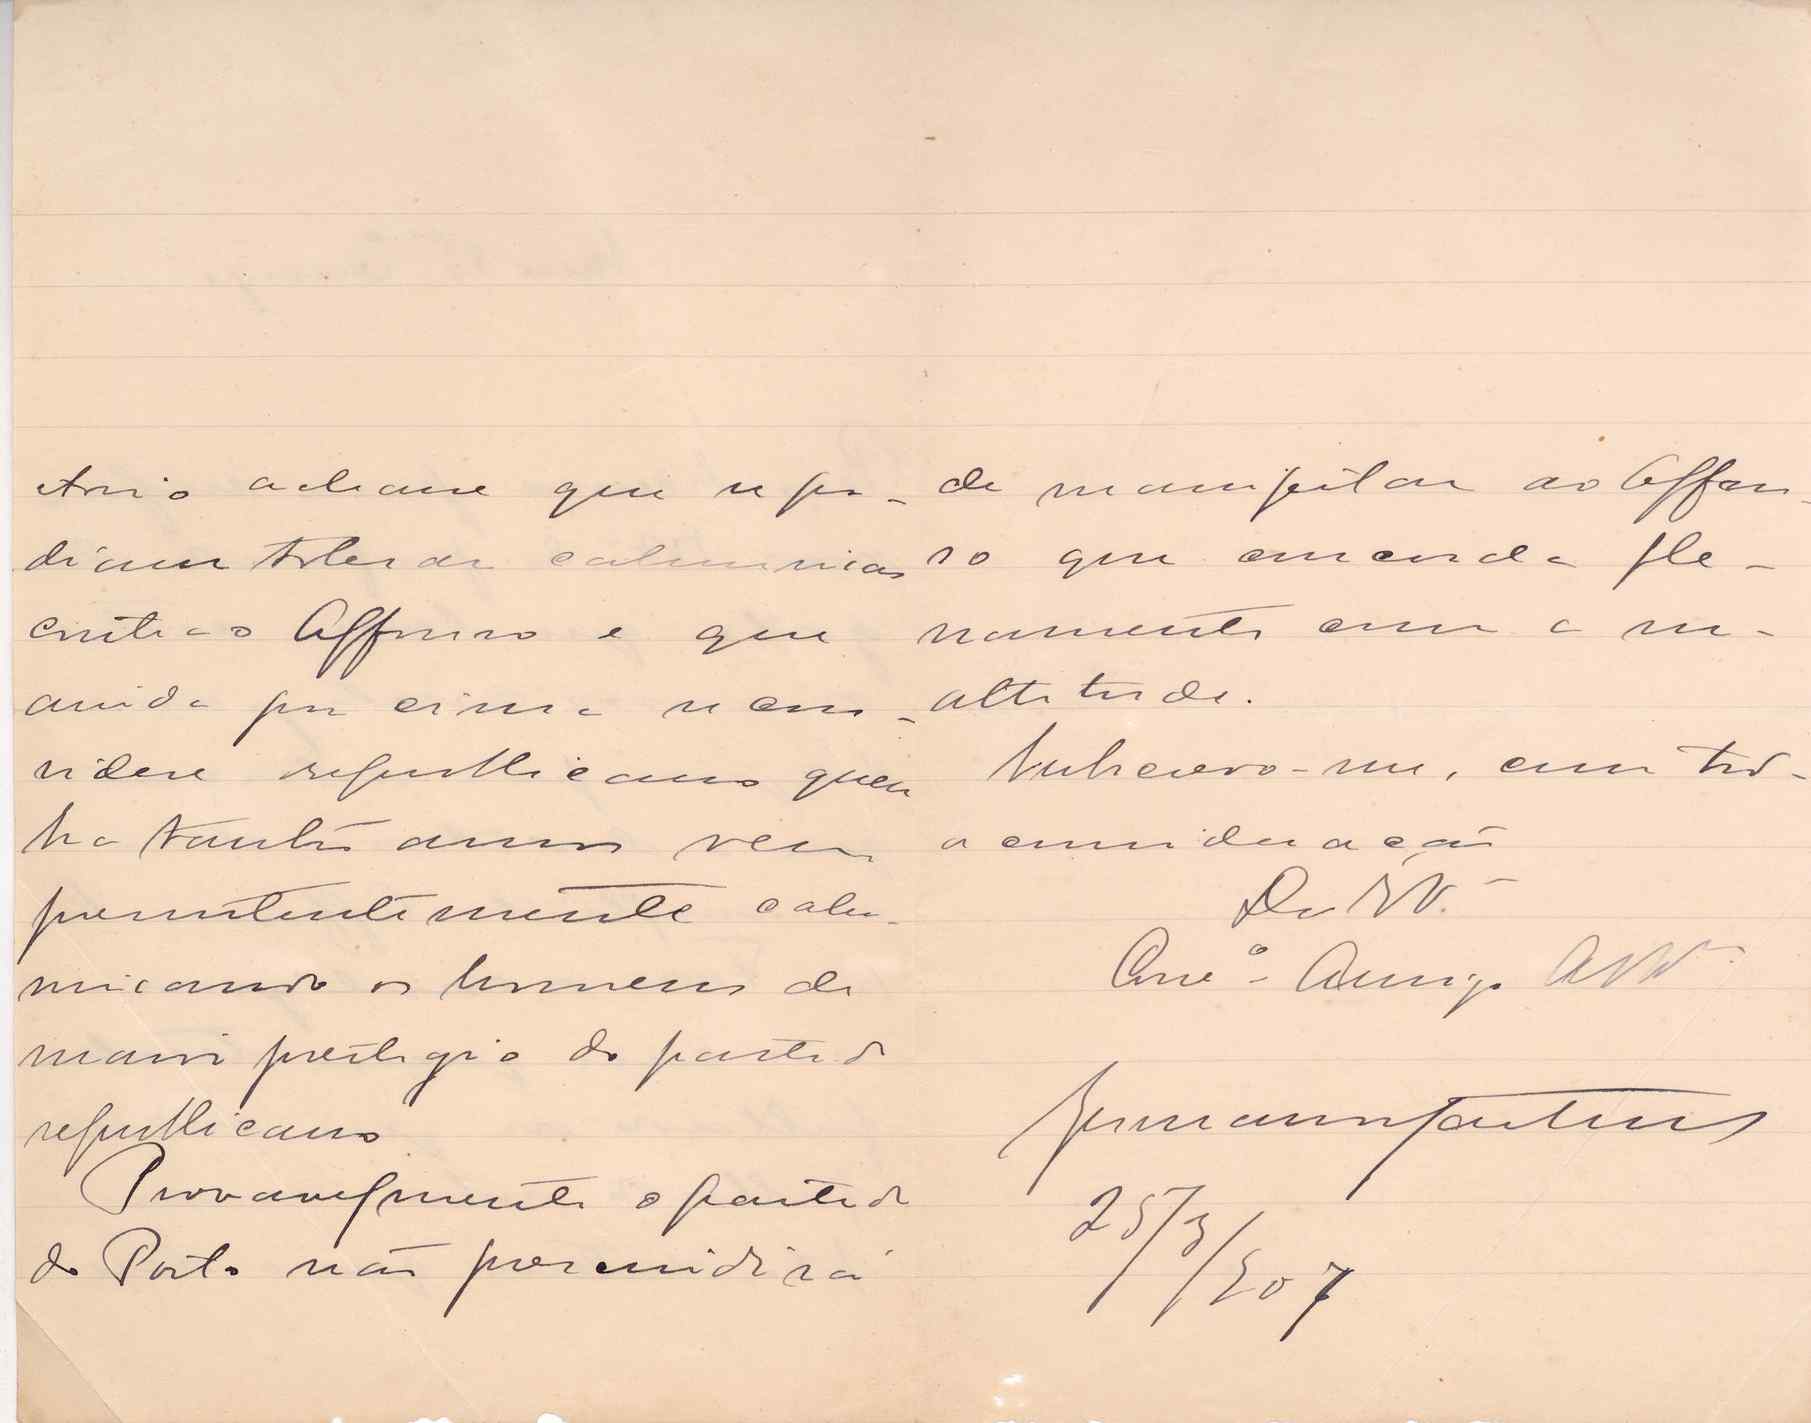 ctorio achasse que se po-
diam tolerar calumnias
contra o Affonso e que
ainda por cima se con-
sidere republicano quem
ha tantos annos vem
persistentemente calu-
mniando os homens de
maior prestigio do partido
republicano
Provavelmente o partido
do Porto não prescindirá
de manifestar ao Affon-
so que concorda ple-
namente com a su-
attitude.
Subscrevo-me, com tod-
a consideração
De V.
Corr.º Amigo
Germano Martins
25/3/907